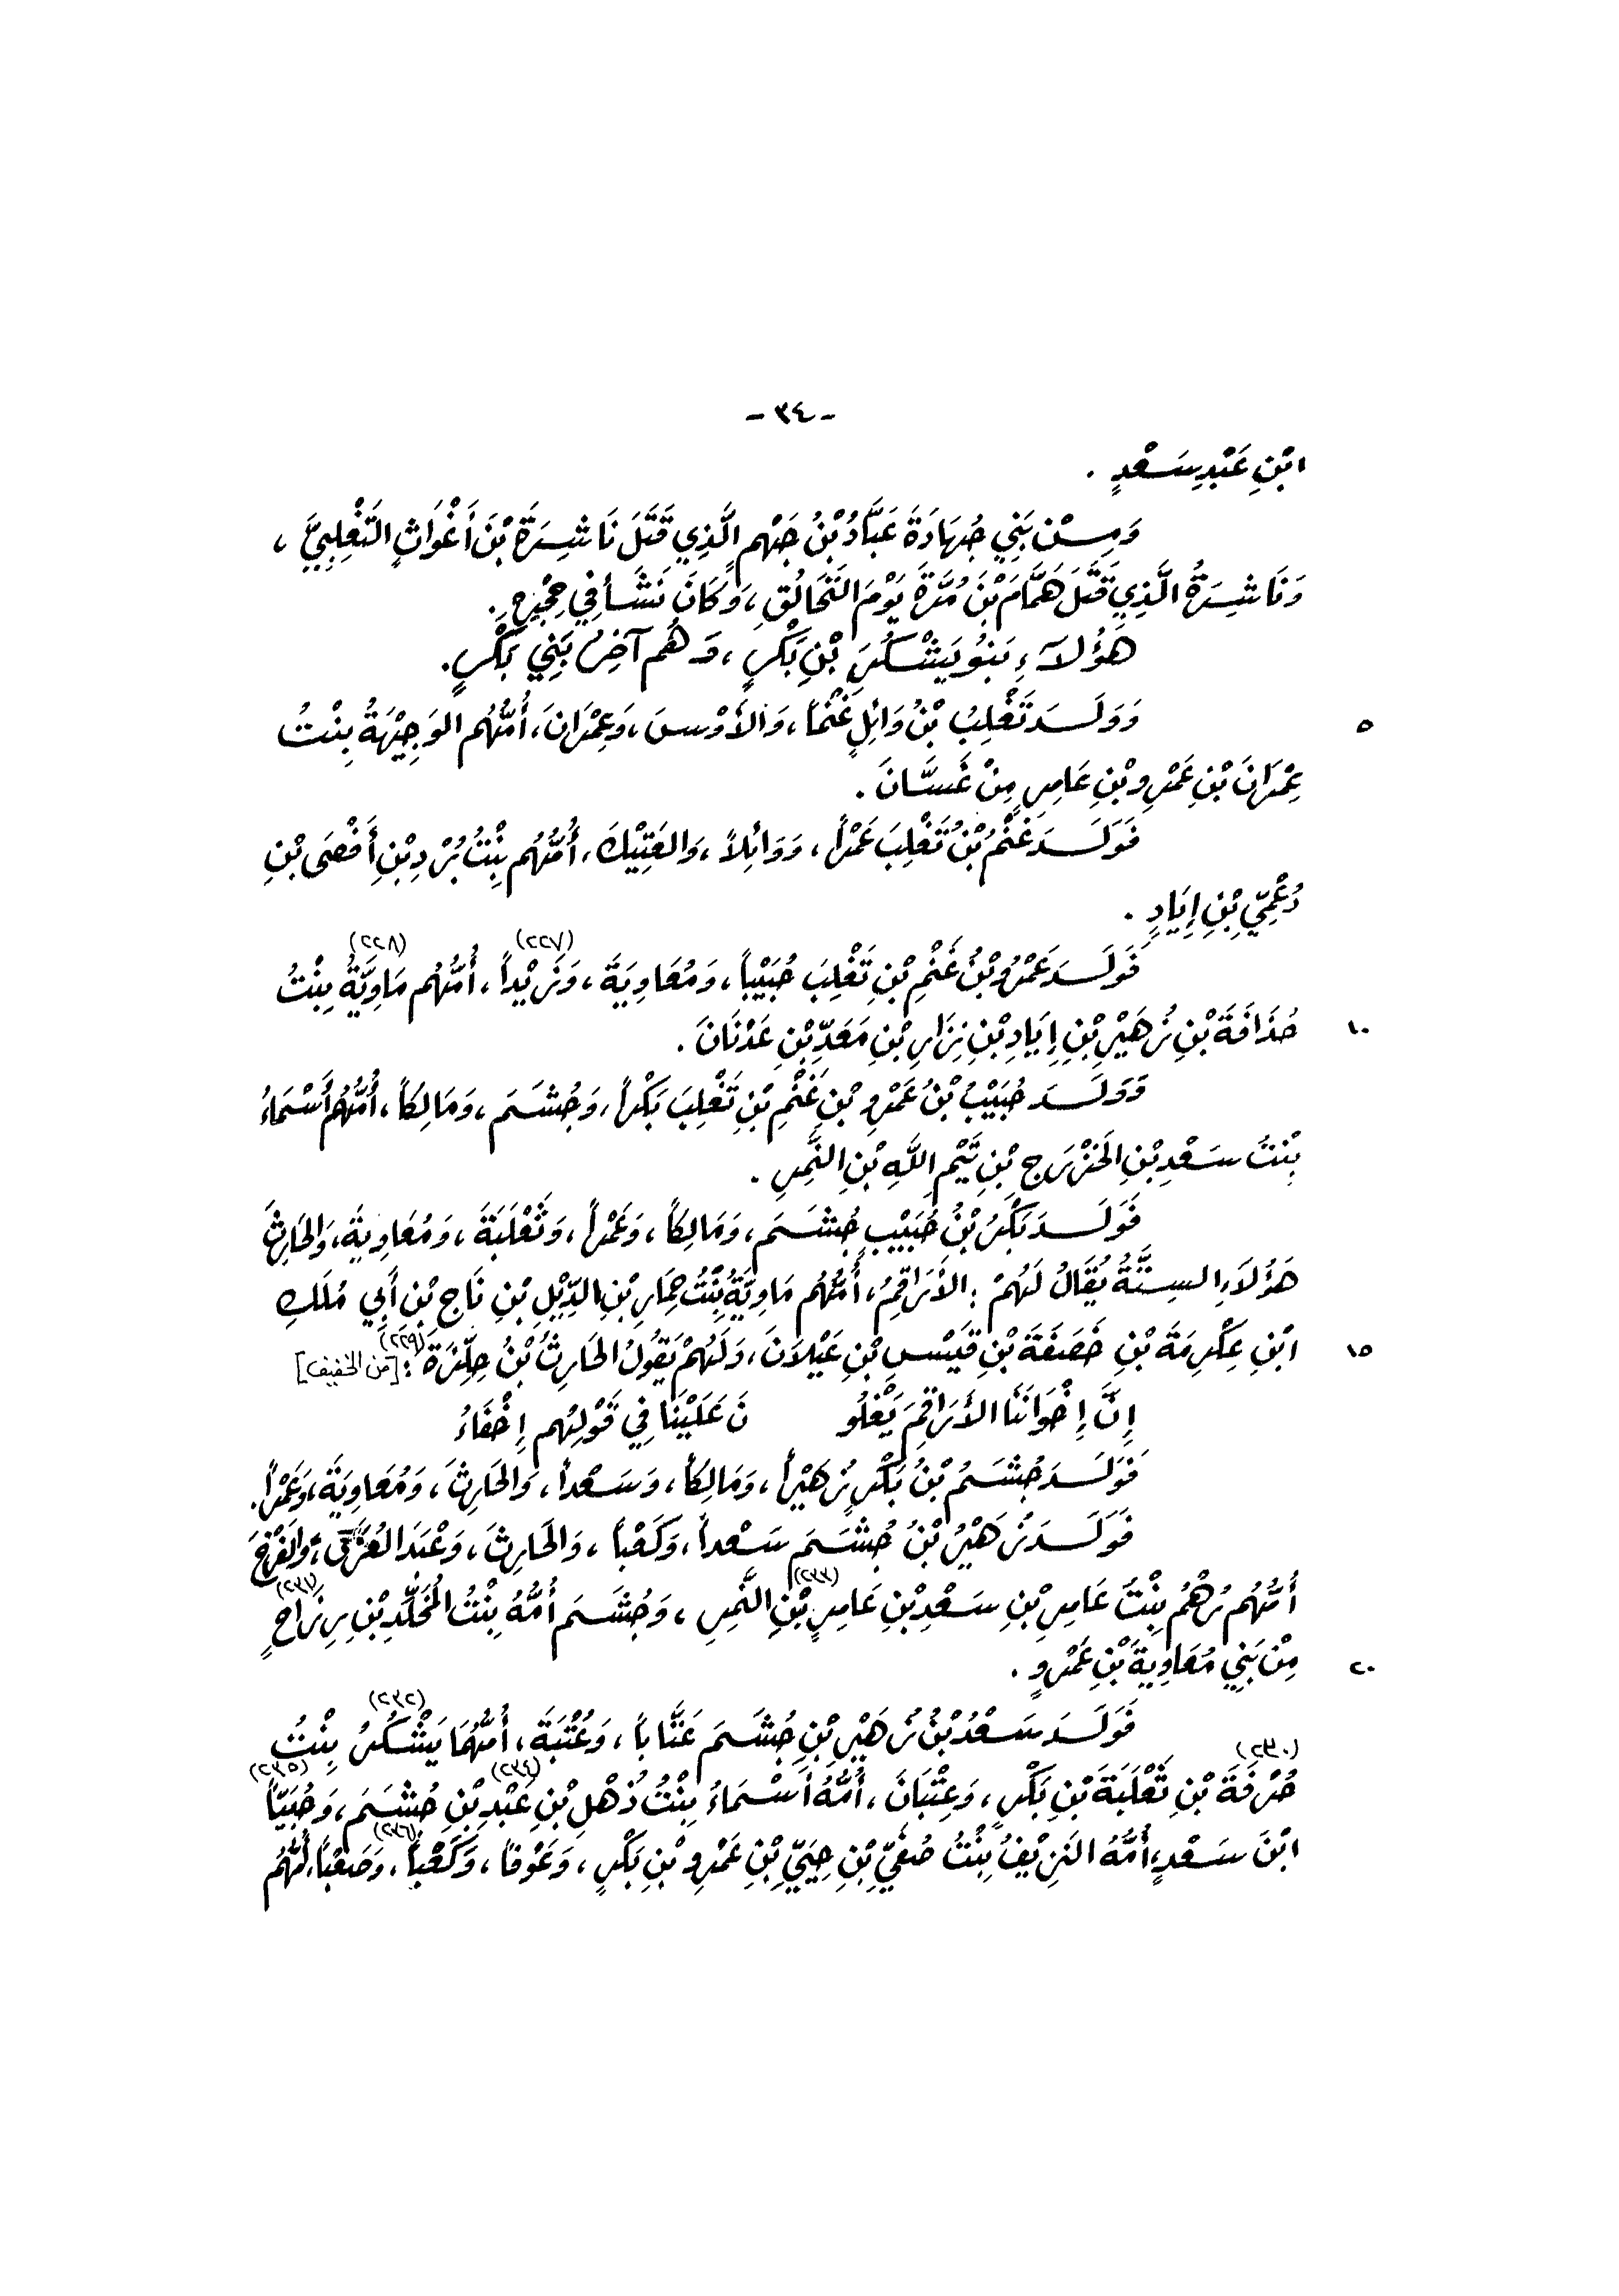 - ٣٤ -
ابْنِ عَبْدِ سَعْدٍ .
وَمِنْ بَنِي جُهَادَةَ عَبَّادُ بْنُ جَهْمٍ الَّذِي قَتَلَ نَاشِرَةَ بْنَ أَغْوَاثٍ التَّغْلِبِيَّ ،
وَنَاشِرَةُ الَّذِي قَتَلَ هَمَّامَ بْنَ مُرَّةَ يَوْمَ التَّحَالُقِ ، وَكَانَ نَشَأَ فِي حِجْرِهِ .
هَؤُلَاءِ بَنُو يَشْكُرَ بْنِ بَكْرٍ ، وَهُم آخِرُ بَنِي بَكْرٍ .
٥ وَوَلَدَ تَغْلِبُ بْنُ وَائِلٍ غَنْماً ، وَالأَوْسَ ، وَعِمْرَانَ ، أُمُّهُم الوَجِيْهَةُ بِنْتُ
عِمْرَانَ بْنِ عَمْرِو بْنِ عَامِرٍ مِنْ غَسَّانَ .
فَوَلَدَ غَنْمُ بْنُ تَغْلِبَ عَمْراً ، وَوَائِلاً ، وَالعَتِيْكَ ، أُمُّهُم بِنْتُ بُرْدِ بْنِ أَفْصَى بْنِ
دُعْمِيِّ بْنِ إِيَادٍ .
فَوَلَدَ عَمْرُو بْنُ غَنْمِ بْنِ تَغْلِبَ حُبَيْباً ، وَمُعَاوِيَةَ ، وَزَيْداً (٢٢٧) ، أُمُّهُم مَاوِيَّةُ (٢٢٨) بِنْتُ
١٠ حُذَافَةَ بْنِ زُهَيْرِ بْنِ إِيَادِ بْنِ نِزَارِ بْنِ مَعَدِّ بْنِ عَدْنَانَ .
وَوَلَدَ حُبَيْبُ بْنُ عَمْرِو بْنِ غَنْمِ بْنِ تَغْلِبَ بَكْراً ، وَجُشَمَ ، وَمَالِكاً ، أُمُّهُم أَسْمَاءُ
بِنْتُ سَعْدِ بْنِ الخَزْرَجِ بْنِ تَيْمِ اللهِ بْنِ النَّمِرِ .
فَوَلَدَ بَكْرُ بْنُ حُبَيْبٍ جُشَمَ ، وَمَالِكاً ، وَعَمْراً ، وَثَعْلَبَةَ ، وَمُعَاوِيَةَ ، وَالحَارِثَ
هَؤُلَاءِ السِتَّةُ يُقَالُ لَهُمْ : الأَرَاقِمُ ، أُمُّهُم مَاوِيَّةُ بِنْتُ حِمَارِ بْنِ الدِّيْلِ بْنِ نَاجِ بْنِ أَبِي مُلَكِ
١٥ ابْنِ عِكْرِمَةَ بْنِ خَصَفَةَ بْنِ قَيْسِ بْنِ عَيْلَانَ ، وَلَهُمْ يَقُولُ الحَارِثُ بْنُ حِلِّزَةَ (٢٢٩) : [من الخفيف]
إِنَّ إِخْوَانَنَا الأَرَاقِمَ يَغْلُو نَ عَلَيْنَا فِي قَوْلِهِم إِحْفَاءُ
فَوَلَدَ جُشَمُ بْنُ بَكْرٍ زُهَيْراً ، وَمَالِكاً ، وَسَعْداً ، وَالحَارِثَ ، وَمُعَاوِيَةَ ، وَعَمْراً .
فَوَلَدَ زُهَيْرُ بْنُ جُشَمَ سَعْداً ، وَكَعْباً ، وَالحَارِثَ ، وَعْبَدَ العُزَّى ، وَالفَرْخَ
أُمُّهُم رُهْمُ بِنْتُ عَامِرِ بْنِ سَعْدِ بْنِ عَامِرِ (٢٣٣) بْنِ النَّمِرِ ، وَجُشَمَ أُمُّهُ بِنْتُ المُخَلَّدِ بْنِ رِزَاحٍ (٢٣١)
٢٠ مِنْ بَنِي مُعَاوِيَةَ بْنِ عَمْرٍو .
فَوَلَدَ سَعْدُ بْنُ زُهَيْرِ بْنِ جُشَمَ عَتَّاباً ، وَعُتْبَةَ ، أُمُّهُمَا يَشْكُرُ (٢٣٢) بِنْتُ
حُرْفَةَ (٢٣٠) بْنِ ثَعْلَبَةَ بْنِ بَكْرٍ ، وَعِتْبَانَ ، أُمُّهُ أَسْمَاءُ بِنْتُ ذُهْلِ بْنِ عَبْدِ (٢٣٤) بْنِ جُشَمَ ، وَحُبَيّاً (٢٣٥)
ابْنَ سَعْدٍ ، أُمُّهُ النَزِيْفُ بِنْتُ صُفَيِّ بْنِ حِيَيِّ بْنِ عَمْرِو بْنِ بَكْرٍ ، وَعَوْفاً ، وَكَعْباً (٢٣٦) ، وَصَعْباً ، أُمُّهُم